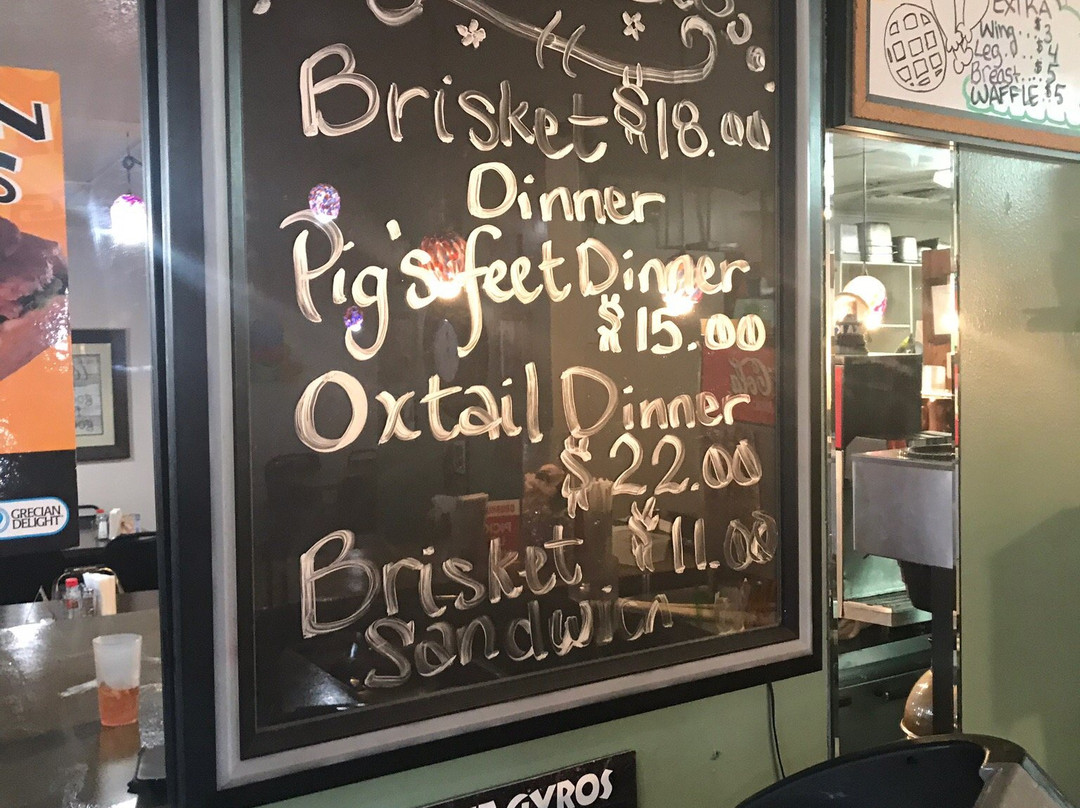 Brisket $18.00
Dinner
Pig's feet Dinner
$15.00
Oxtail Dinner
$22.00
Brisket $11.00
Sandwich
EXTRA
Wing...$3
Leg...$4
Breast...$5
WAFFLE $5
GRECIAN
DELIGHT
GYROS